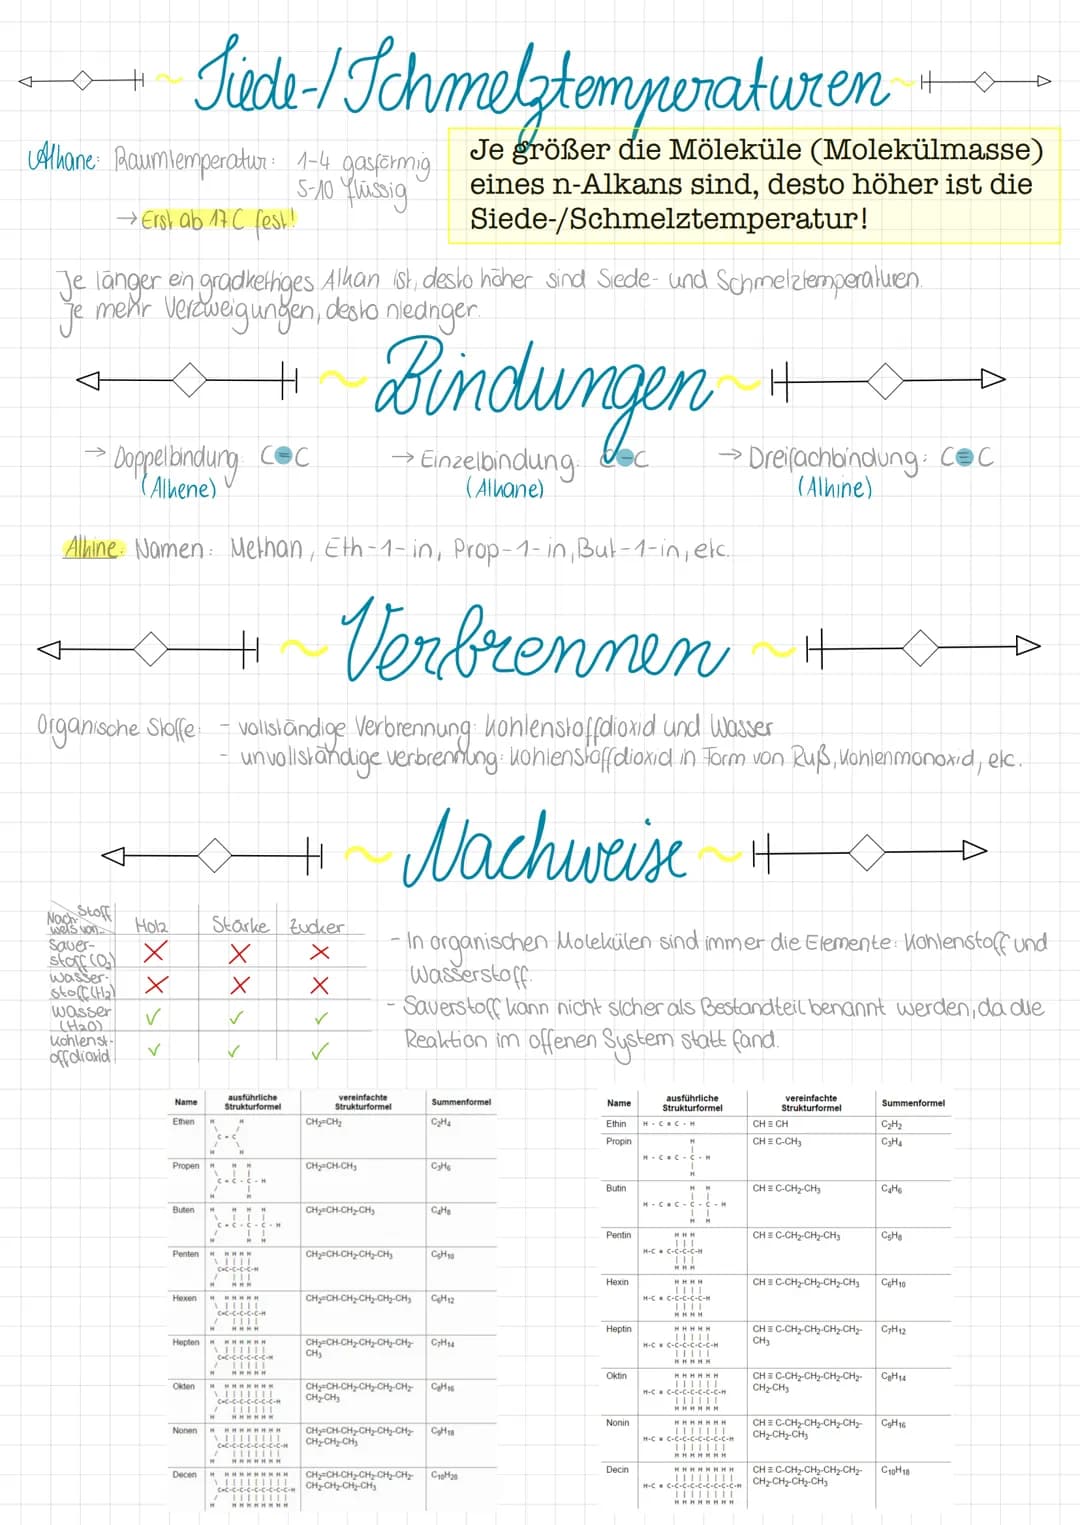 Siede-/Schmelztemperaturen
Alkane: Raumtemperatur: 1-4 gasförmig
5-10 flüssig
→ Erst ab 17 C fest!
Je größer die Möleküle (Molekülmasse)
eines n-Alkans sind, desto höher ist die
Siede-/Schmelztemperatur!
Je länger ein gradkettiges Alkan ist, desto höher sind Siede- und Schmelztemperaturen.
Je mehr Verzweigungen, desto niedriger.
Bindungen
→ Doppelbindung: C=C
(Alkene)
→ Einzelbindung: C-C
(Alkane)
→ Dreifachbindung: C≡C
(Alkine)
Alkine: Namen: Methan, Eth-1-in, Prop-1-in, But-1-in, etc.
Verbrennen
Organische Stoffe: - vollständige Verbrennung: Kohlenstoffdioxid und Wasser
- unvollständige verbrennung: Kohlenstoffdioxid in Form von Ruß, Kohlenmonoxid, etc.
Nachweise
Stoff
Nach-
weis von..
Holz Stärke Zucker
Sauer-
stoff (O₂) X X X
Wasser-
stoff (H₂) X X X
Wasser
(H₂O) ✓ ✓ ✓
Kohlenst-
offdioxid ✓ ✓ ✓
- In organischen Molekülen sind immer die Elemente: Kohlenstoff und
Wasserstoff.
- Sauerstoff kann nicht sicher als Bestandteil benannt werden, da die
Reaktion im offenen System statt fand.
Name ausführliche Strukturformel vereinfachte Strukturformel Summenformel
Ethen CH₂=CH₂ C₂H₄
Propen CH₂=CH-CH₃ C₃H₆
Buten CH₂=CH-CH₂-CH₃ C₄H₈
Penten CH₂=CH-CH₂-CH₂-CH₃ C₅H₁₀
Hexen CH₂=CH-CH₂-CH₂-CH₂-CH₃ C₆H₁₂
Hepten CH₂=CH-CH₂-CH₂-CH₂-CH₂- C₇H₁₄
CH₃
Okten CH₂=CH-CH₂-CH₂-CH₂-CH₂- C₈H₁₆
CH₂-CH₃
Nonen CH₂=CH-CH₂-CH₂-CH₂-CH₂- C₉H₁₈
CH₂-CH₂-CH₃
Decen CH₂=CH-CH₂-CH₂-CH₂-CH₂- C₁₀H₂₀
CH₂-CH₂-CH₂-CH₃
Name ausführliche Strukturformel vereinfachte Strukturformel Summenformel
Ethin H - C ≡ C - H CH ≡ CH C₂H₂
Propin CH ≡ C-CH₃ C₃H₄
Butin CH ≡ C-CH₂-CH₃ C₄H₆
Pentin CH ≡ C-CH₂-CH₂-CH₃ C₅H₈
Hexin CH ≡ C-CH₂-CH₂-CH₂-CH₃ C₆H₁₀
Heptin CH ≡ C-CH₂-CH₂-CH₂-CH₂- C₇H₁₂
CH₃
Oktin CH ≡ C-CH₂-CH₂-CH₂-CH₂- C₈H₁₄
CH₂-CH₃
Nonin CH ≡ C-CH₂-CH₂-CH₂-CH₂- C₉H₁₆
CH₂-CH₂-CH₃
Decin CH ≡ C-CH₂-CH₂-CH₂-CH₂- C₁₀H₁₈
CH₂-CH₂-CH₂-CH₃